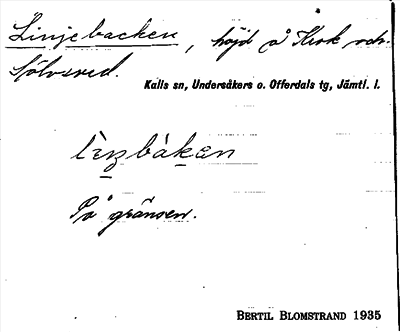 Linjebacken, höjd å Kirk och
Sölvsved.
Kalls sn, Undersåkers o. Offerdals tg, Jämtl. l.
På gränsen.
BERTIL BLOMSTRAND 1935